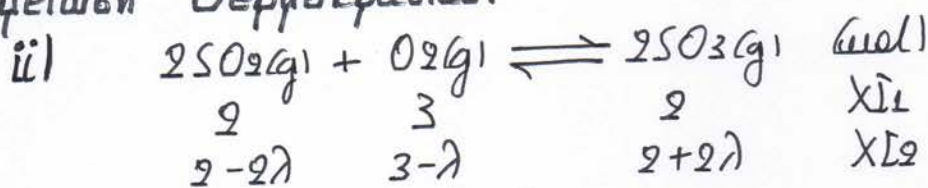 ii) 2SO2(g) + O2(g) ⇌ 2SO3(g) (mol)
2 3 2 XI1
2-2λ 3-λ 2+2λ XI2